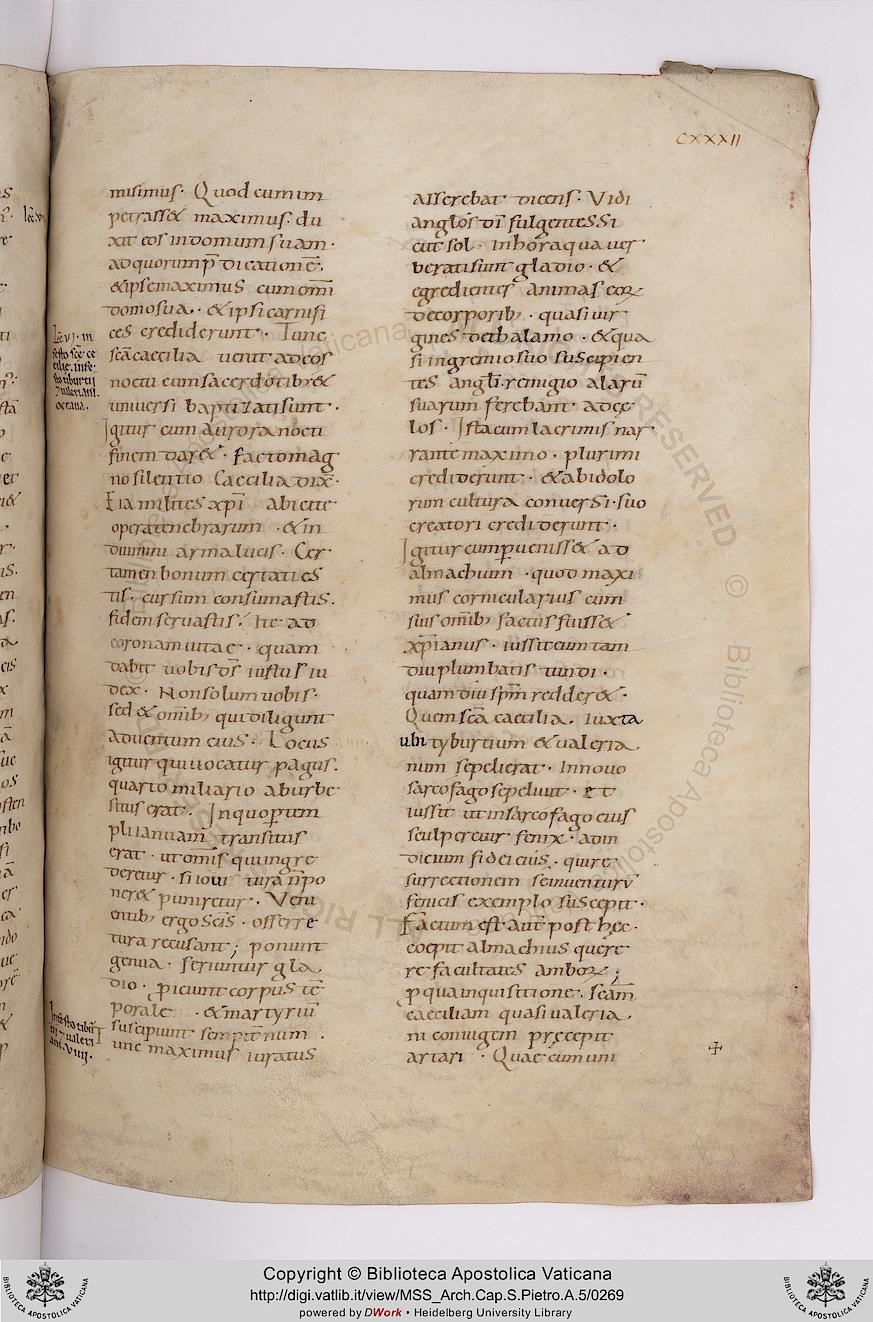 CXXXII
misimus. Quod cum im
petrass& maximus. du
xit eos in domum suam.
ad quorum p̄dicatione.
& ipse maximus cum omi
domo sua. & ipsi carnifi
ces crediderunt. Tunc
sc̄a caecilia uenit ad eos
noctu cum sacerdotib; &
uniuersi baptizati sunt.
Igitur cum aurora nocti
finem dar&. factomag
no silentio Caecilia dix̄.
Eia milites xp̄i abicite
opera tenebrarum & in
duimini arma lucis. Cer
tamen bonum certati es
tis. cursum consumastis.
fidem seruastis. Ite ad
coronam uitae. quam
dabit uobis d̄s iustus iu
dex. Non solum uobis.
sed & omīb; qui diligunt
aduentum eius. Locus
igitur qui uocatur pagus.
quarto miliario ab urbe
situs erat. In quo p̱um
pli ianuam transitus
erat. ut om̄s qui ingre
deretur. si ioui tura ñ po
ner& puniretur. Veni
entib; ergo sc̄is. offerre
tura recusant; ponunt
genua. feriuntur gla
dio. p̱iciunt corpus tē
porale. & martyriū
suscipiunt sempit̄num.
unc maximus iuratus
asserebat dicens. Vidi
anglos dī fulgentes si
cut sol. in hora qua uer
berati sunt gladio. &
egredientes animas eoꝝ
de corporib; quasi uir
gines de thalamo. & qua
si in gremio suo suscipien
tes angłi. remigio alarū
suarum ferebant ad cę
los. Ista cum lacrimis nar
rante maximo. plurimi
crediderunt. & ab idolo
rum cultura conuersi. suo
creatori crediderunt.
Igitur cum p̱uenisse& ad
almachum. quod maxi
mus cornicularius cum
suis omīb; factus fuiss&
xp̄ianus. iussit eum tam
diu plumbatis tundi.
quam diu sp̄m redder&.
Quem sc̄a caecilia. iuxta
ubi tyburtium & ualeria
num sepelierat. In nouo
sarcofago sepeliuit. et
iussit ut in sarcofago eius
sculperetur fenix. ad in
dicium fidei eius. qui re
surrectionem se inuenturū
fenicis exemplo suscepit.
Factum est aut̄ post hęc.
coepit almachius quere
re facultates amboꝝ;
p̱ qua inquisitione. scām
caeciliam quasi ualeria
ni coniugem pręcepit
artari. Quae cum uni
Copyright © Biblioteca Apostolica Vaticana
http://digi.vatlib.it/view/MSS_Arch.Cap.S.Pietro.A.5/0269
powered by DWork • Heidelberg University Library